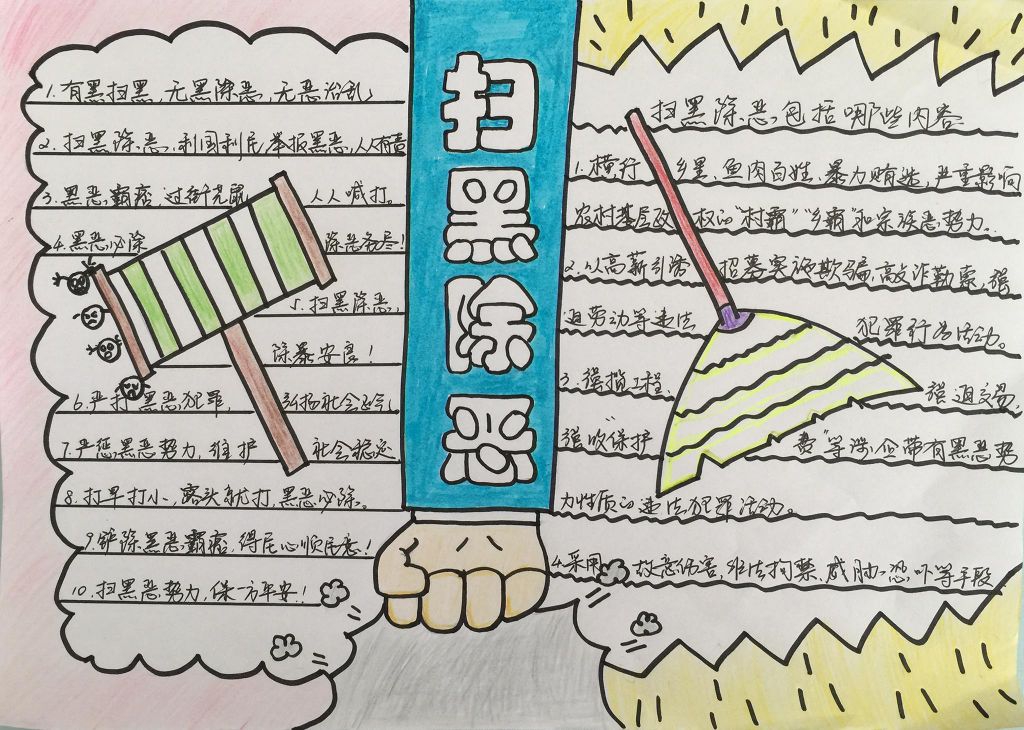 扫黑除恶
1.有黑扫黑,无黑除恶,无恶治乱;
2.扫黑除恶,利国利民,举报黑恶,人人有责
3.黑恶霸痞 过街老鼠 人人喊打。
4.黑恶必除 除恶务尽!
5.扫黑除恶,
除暴安良!
6.严打黑恶犯罪, 弘扬社会正气
7.严惩黑恶势力,维护 社会稳定
8.打早打小,露头就打,黑恶必除。
9.铲除黑恶霸痞,得民心顺民意!
10.扫黑恶势力,保一方平安!
扫黑除恶包括哪些内容
1.横行 乡里、鱼肉百姓、暴力贿选,严重影响
农村基层政 权的“村霸”“乡霸”和宗族恶势力。
2.以高薪引诱 招募实施欺骗,敲诈勒索,强
迫劳动等违法 犯罪行为活动。
3.强揽工程, 强迫交易,
强收“保护 费”等涉 带有黑恶势
力性质的违法犯罪活动。
4.采用 故意伤害,非法拘禁、威胁、恐吓等手段